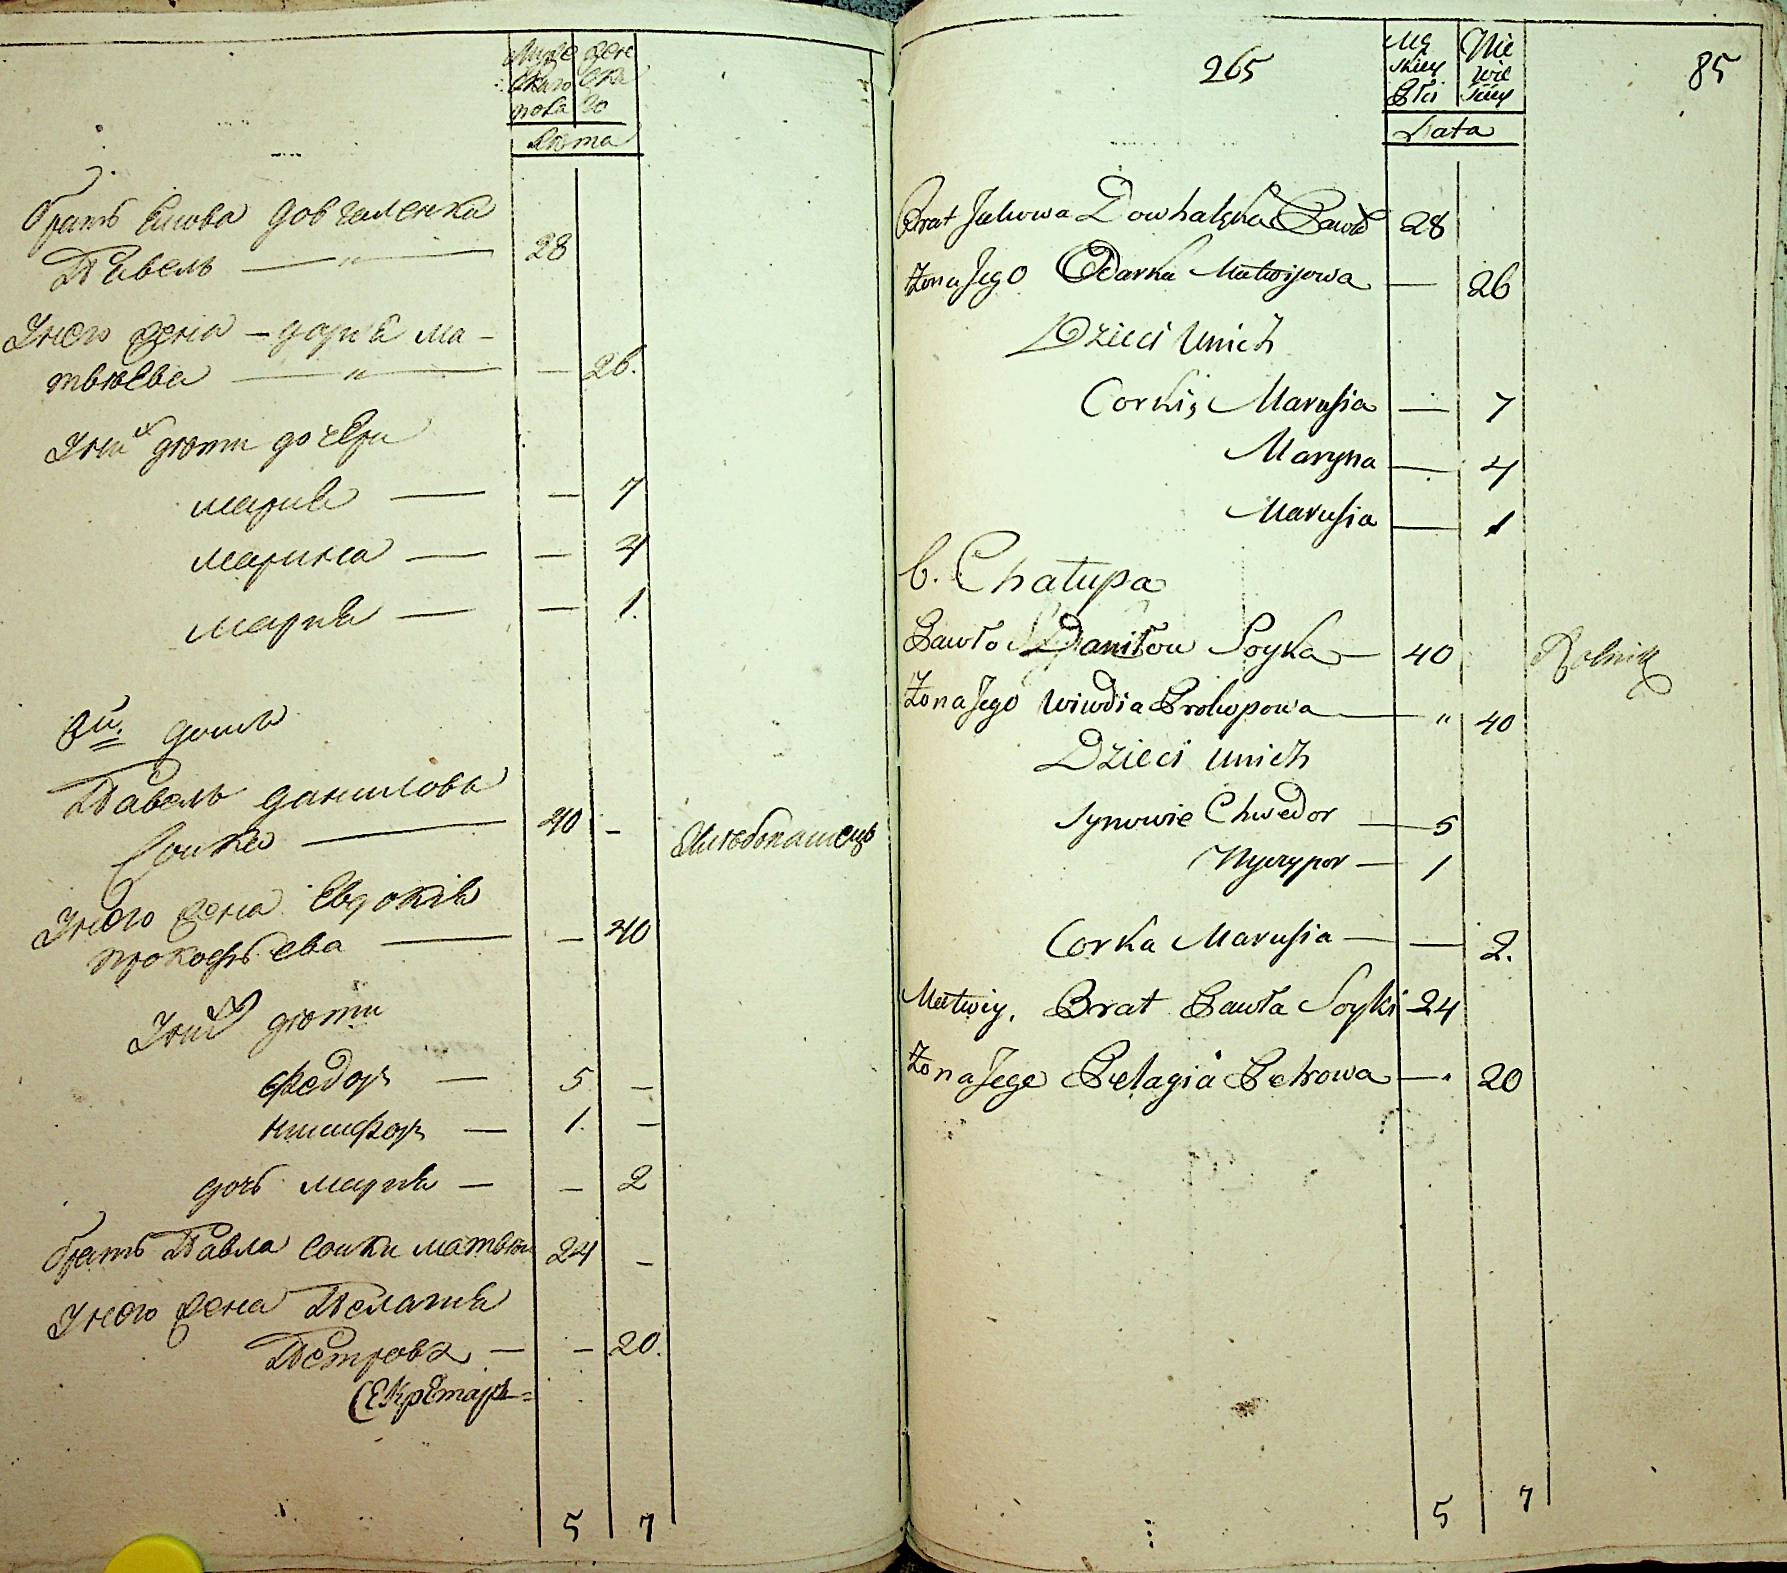 Муже жен
скаго ска
пола го
Лѣта
братъ Якова Довгаленка
Павелъ — „ — 28
У него жена — Дарья Ма-
твѣева — „ — — 26.
У них дѣти дочери
Мария — — 7
Марина — — 4
Мария — — 1.
6й. домъ
Павелъ Даниловъ
Сойка — 40 — Хлѣбопашецъ
У него жена Евдокія
Прокофьева — — 40
У них дѣти
Федоръ — 5 —
Никифоръ — 1. —
дочь Мария — — 2
братъ Павла Сойки Матвѣй 24 —
У него жена Пелагия
Петрова — — 20.
Секретарь
5 7
265
Mę Nie
skiey wie
Płci sciey
85
Lata
Brat Jakowa Dowhalęka Pawło 28
Żona Jego Odarka Matwijowa — 26
Dzieci U nich
Corki, Marusia — 7
Maryna — 4
Marusia — 1
6. Chałupa
Pawło Daniłow Soyka — 40 Rolnik
Żona Jego Wiwdia Prokopowa — „ 40
Dzieci U nich
Synowie Chwedor — 5
Nyczypor — 1
Corka Marusia — — 2.
Matwiy, Brat Pawła Soyki 24
Żona Jego Pelagia Petrowa — 20
5 7